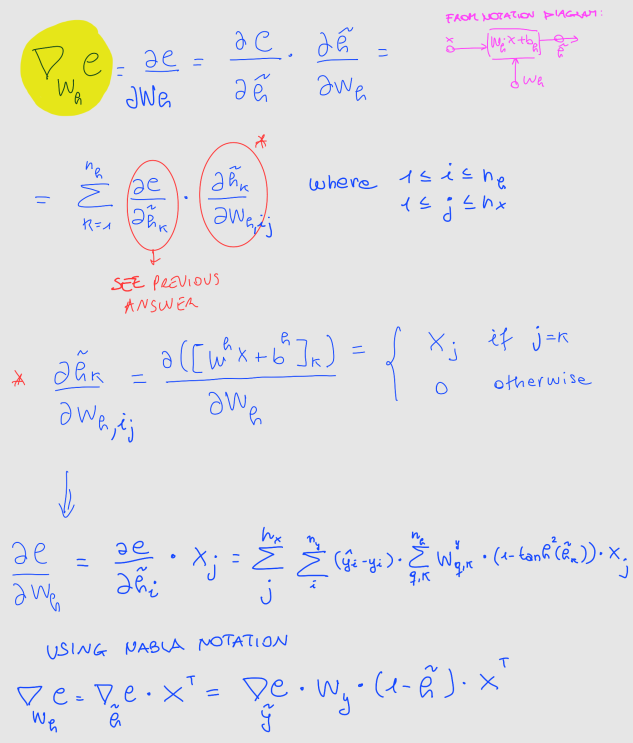 FROM NOTATION DIAGRAM:
x [W_h x + b_h] h̃
W_h
∇_{W_h} e = ∂e/∂W_h = ∂e/∂h̃ · ∂h̃/∂W_h =
*
= Σ_{k=1}^{n_h} ∂e/∂h̃_k · ∂h̃_k/∂W_{h,ij} where 1 ≤ i ≤ n_h
1 ≤ j ≤ n_x
SEE PREVIOUS
ANSWER
* ∂h̃_k/∂W_{h,ij} = ∂([W^h x + b^h]_k)/∂W_h = { x_j if j=k
0 otherwise
⇓
∂e/∂W_h = ∂e/∂h̃_i · x_j = Σ_j^{n_x} Σ_i^{n_y} (ŷ_i - y_i) · Σ_{q,k}^{n_h} W^y_{q,k} · (1 - tanh²(h̃_k)) · x_j
USING NABLA NOTATION
∇_{W_h} e = ∇_{h̃} e · x^T = ∇_{ỹ} e · W_y · (1 - h̃) · x^T